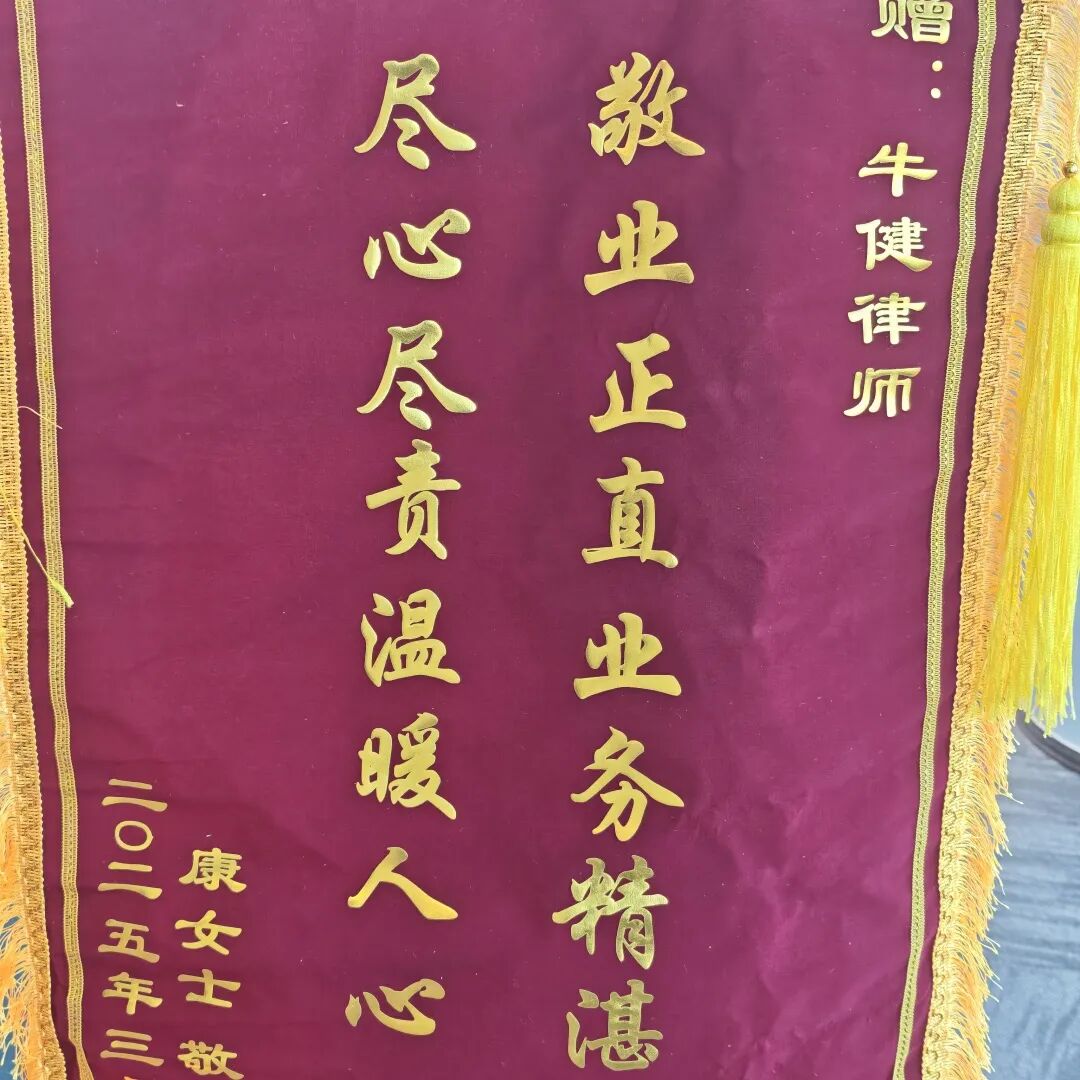 赠：牛健律师
敬业正直业务精湛
尽心尽责温暖人心
康女士 敬
二〇二五年三